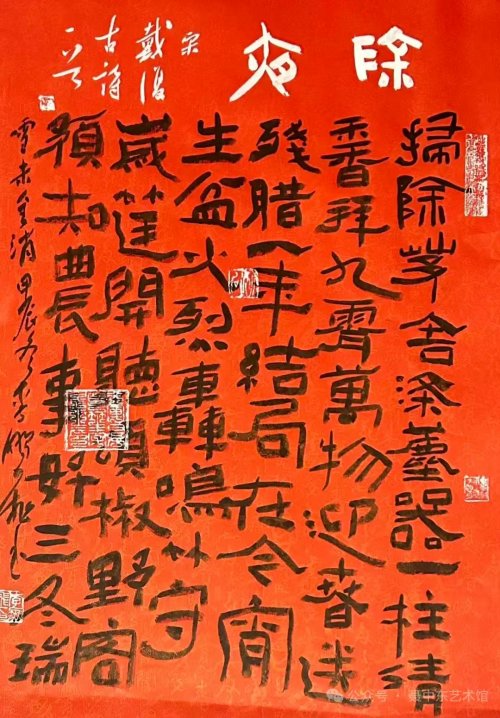 除夜
宋
戴復
古詩
一首
掃除茅舍滌塵器一柱清
香拜九霄萬物迎春送
殘腊一年結局在今宵
生盆火烈轟鳴竹守
歲筵開聽頌椒野客
預知農事好三冬瑞
雪未全消甲辰冬李鵬
公众号·聂中东艺术馆